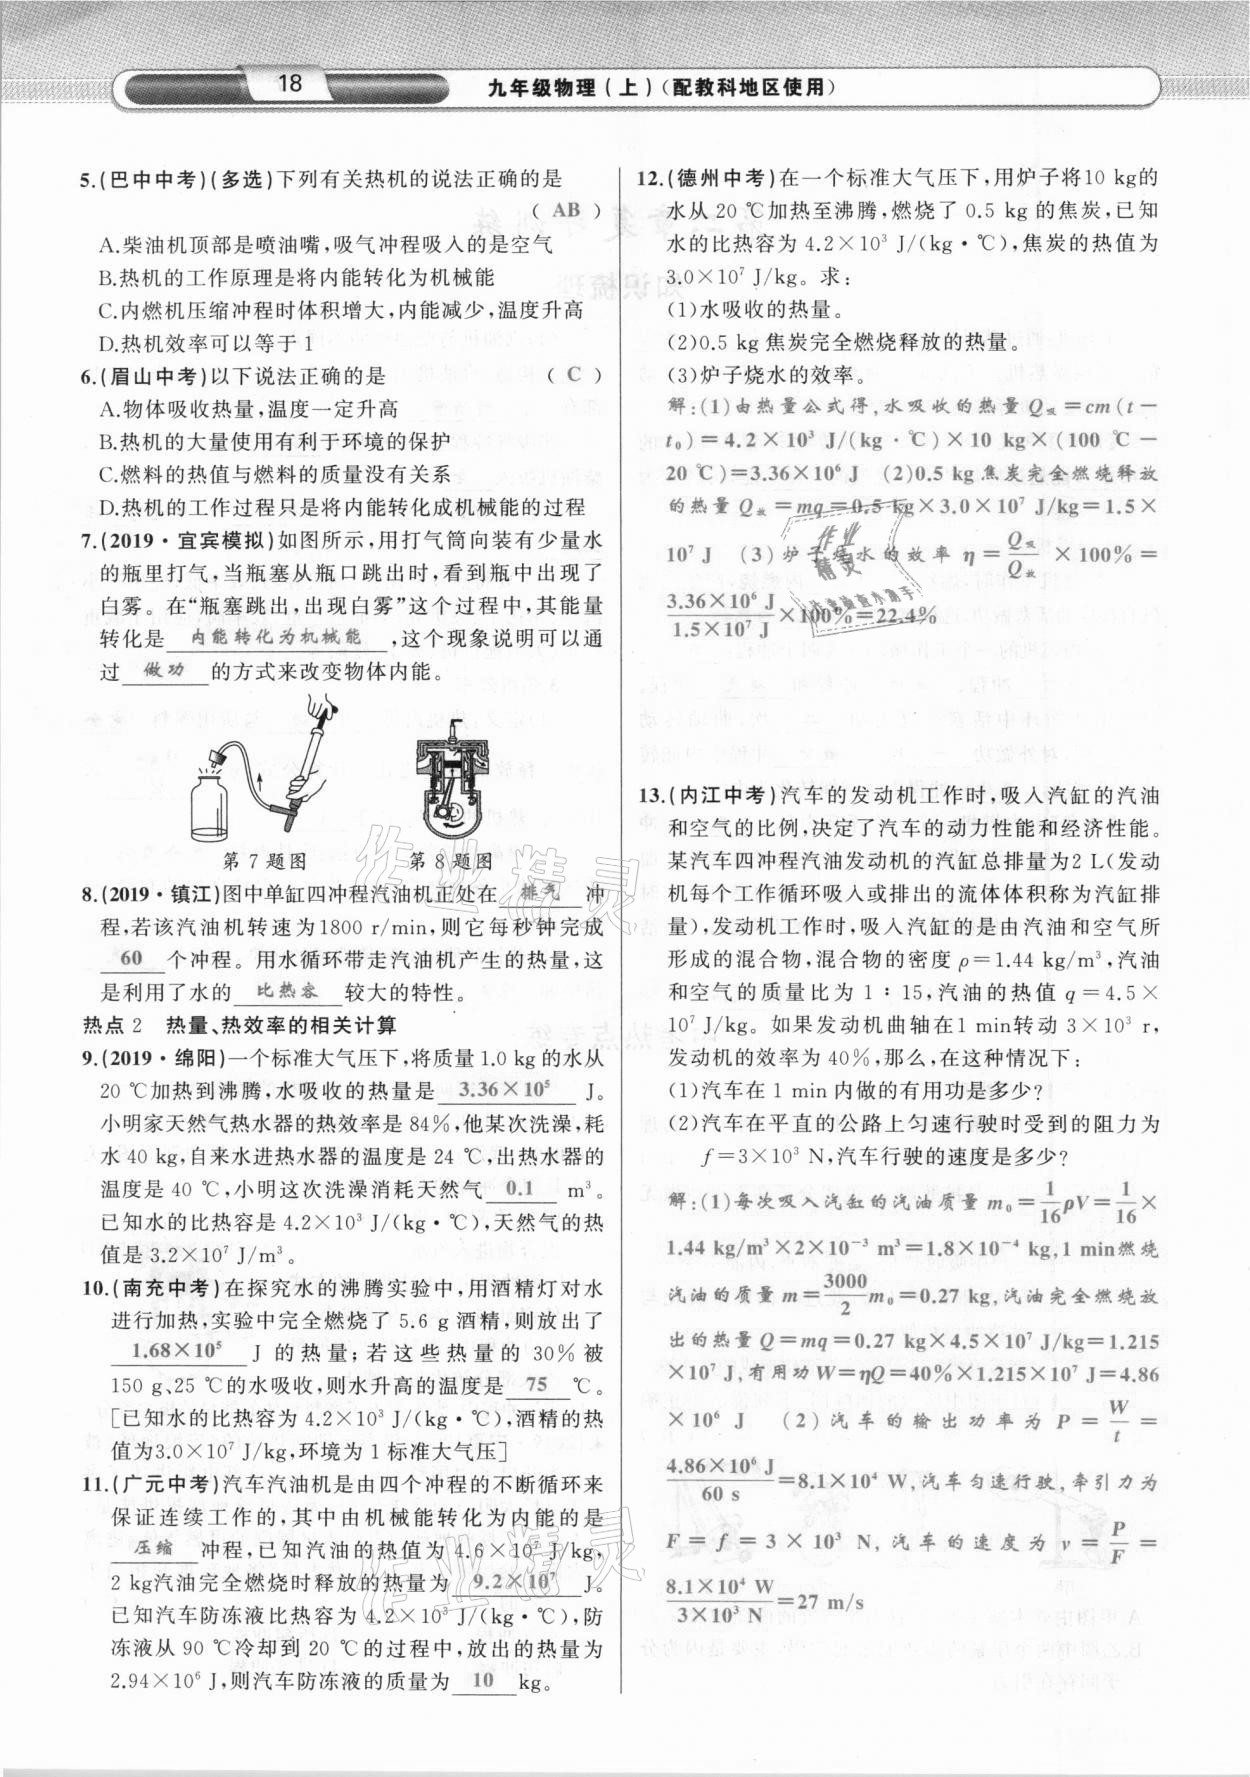 18
九年级物理(上)(配教科地区使用)
5.(巴中中考)(多选)下列有关热机的说法正确的是
( AB )
A.柴油机顶部是喷油嘴,吸气冲程吸入的是空气
B.热机的工作原理是将内能转化为机械能
C.内燃机压缩冲程时体积增大,内能减少,温度升高
D.热机效率可以等于1
6.(眉山中考)以下说法正确的是 ( C )
A.物体吸收热量,温度一定升高
B.热机的大量使用有利于环境的保护
C.燃料的热值与燃料的质量没有关系
D.热机的工作过程只是将内能转化成机械能的过程
7.(2019·宜宾模拟)如图所示,用打气筒向装有少量水
的瓶里打气,当瓶塞从瓶口跳出时,看到瓶中出现了
白雾。在“瓶塞跳出,出现白雾”这个过程中,其能量
转化是 内能转化为机械能 ,这个现象说明可以通
过 做功 的方式来改变物体内能。
第7题图 第8题图
8.(2019·镇江)图中单缸四冲程汽油机正处在 排气 冲
程,若该汽油机转速为1800 r/min,则它每秒钟完成
60 个冲程。用水循环带走汽油机产生的热量,这
是利用了水的 比热容 较大的特性。
热点2 热量、热效率的相关计算
9.(2019·绵阳)一个标准大气压下,将质量1.0 kg的水从
20 ℃加热到沸腾,水吸收的热量是 3.36×10⁵ J。
小明家天然气热水器的热效率是84%,他某次洗澡,耗
水40 kg,自来水进热水器的温度是24 ℃,出热水器的
温度是40 ℃,小明这次洗澡消耗天然气 0.1 m³。
已知水的比热容是4.2×10³ J/(kg·℃),天然气的热
值是3.2×10⁷ J/m³。
10.(南充中考)在探究水的沸腾实验中,用酒精灯对水
进行加热,实验中完全燃烧了5.6 g酒精,则放出了
1.68×10⁵ J的热量;若这些热量的30%被
150 g、25 ℃的水吸收,则水升高的温度是 75 ℃。
[已知水的比热容为4.2×10³ J/(kg·℃),酒精的热
值为3.0×10⁷ J/kg,环境为1标准大气压]
11.(广元中考)汽车汽油机是由四个冲程的不断循环来
保证连续工作的,其中由机械能转化为内能的是
压缩 冲程,已知汽油的热值为4.6×10⁷ J/kg,
2 kg汽油完全燃烧时释放的热量为 9.2×10⁷ J。
已知汽车防冻液比热容为4.2×10³ J/(kg·℃),防
冻液从90 ℃冷却到20 ℃的过程中,放出的热量为
2.94×10⁶ J,则汽车防冻液的质量为 10 kg。
12.(德州中考)在一个标准大气压下,用炉子将10 kg的
水从20 ℃加热至沸腾,燃烧了0.5 kg的焦炭,已知
水的比热容为4.2×10³ J/(kg·℃),焦炭的热值为
3.0×10⁷ J/kg。求:
(1)水吸收的热量。
(2)0.5 kg焦炭完全燃烧释放的热量。
(3)炉子烧水的效率。
解:(1)由热量公式得,水吸收的热量Q吸=cm(t-
t₀)=4.2×10³ J/(kg·℃)×10 kg×(100 ℃-
20 ℃)=3.36×10⁶ J (2)0.5 kg焦炭完全燃烧释放
的热量Q放=mq=0.5 kg×3.0×10⁷ J/kg=1.5×
10⁷ J (3)炉子烧水的效率η=Q吸/Q放×100%=
3.36×10⁶ J/1.5×10⁷ J×100%=22.4%
13.(内江中考)汽车的发动机工作时,吸入汽缸的汽油
和空气的比例,决定了汽车的动力性能和经济性能。
某汽车四冲程汽油发动机的汽缸总排量为2 L(发动
机每个工作循环吸入或排出的流体体积称为汽缸排
量),发动机工作时,吸入汽缸的是由汽油和空气所
形成的混合物,混合物的密度ρ=1.44 kg/m³,汽油
和空气的质量比为1∶15,汽油的热值q=4.5×
10⁷ J/kg。如果发动机曲轴在1 min转动3×10³ r,
发动机的效率为40%,那么,在这种情况下:
(1)汽车在1 min内做的有用功是多少?
(2)汽车在平直的公路上匀速行驶时受到的阻力为
f=3×10³ N,汽车行驶的速度是多少?
解:(1)每次吸入汽缸的汽油质量m₀=1/16ρV=1/16×
1.44 kg/m³×2×10⁻³ m³=1.8×10⁻⁴ kg,1 min燃烧
汽油的质量m=3000/2m₀=0.27 kg,汽油完全燃烧放
出的热量Q=mq=0.27 kg×4.5×10⁷ J/kg=1.215
×10⁷ J,有用功W=ηQ=40%×1.215×10⁷ J=4.86
×10⁶ J (2)汽车的输出功率为P=W/t=
4.86×10⁶ J/60 s=8.1×10⁴ W,汽车匀速行驶,牵引力为
F=f=3×10³ N,汽车的速度为v=P/F=
8.1×10⁴ W/3×10³ N=27 m/s
作业精灵
作业精灵
作业
精灵